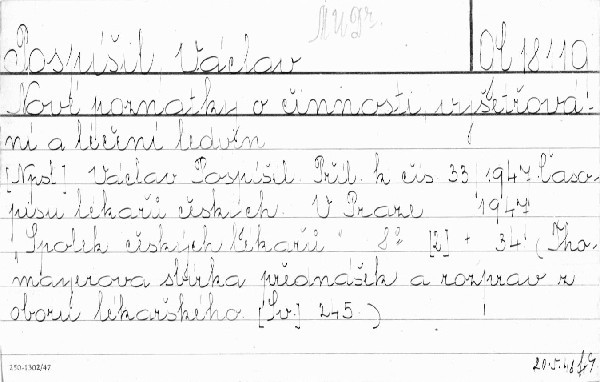 Mugr.
Pospíšil, Václav
Nové poznatky o činnosti, vyšetřová-
ní a léčení ledvin
[Nps!] Václav Pospíšil. Příl. k čís 33, 1947 Časo-
pisu lékařů českých. V Praze 1947
"Spolek českých lékařů" 8° [2] + 34 (Tho-
mayerova sbírka přednášek a rozprav z
oboru lékařského. [Sv.] 245.)
250-1302/47
20.5.48